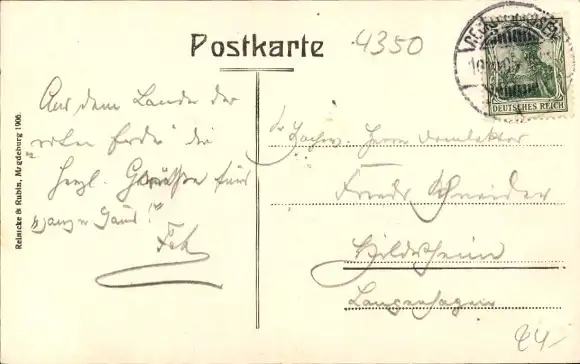 Postkarte
4350
DEUTSCHES REICH
Reinicke & Rubin, Magdeburg 1906.
Aus dem Lande der
"roten Erde" die
herzl. Grüsse fürs
ganze Haus!
Herrn
Schneider
Hildesheim
Langenhagen
24.-